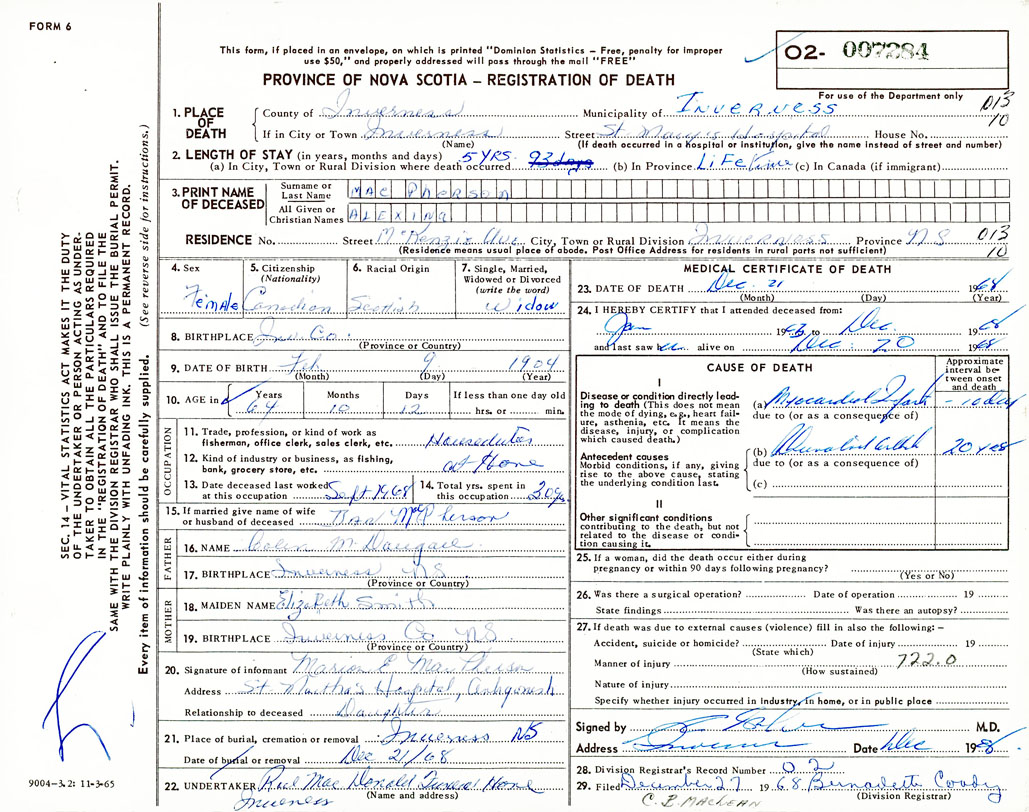 FORM 6
This form, if placed in an envelope, on which is printed "Dominion Statistics – Free, penalty for improper
use $50," and properly addressed will pass through the mail "FREE"
PROVINCE OF NOVA SCOTIA – REGISTRATION OF DEATH
O2- 007284
For use of the Department only
013
10
1. PLACE OF DEATH
County of Inverness Municipality of INVERNESS
If in City or Town Inverness Street St Mary's Hospital House No.
(Name) (If death occurred in a Hospital or institution, give the name instead of street and number)
2. LENGTH OF STAY (in years, months and days) 5 YRS. 93 days Lifetime
(a) In City, Town or Rural Division where death occurred (b) In Province (c) In Canada (if immigrant)
3. PRINT NAME OF DECEASED
Surname or Last Name MacPherson
All Given or Christian Names ALEXINA
RESIDENCE No. Street McKenzie Ave City, Town or Rural Division Inverness Province NS
(Residence means usual place of abode. Post Office Address for residents in rural parts not sufficient)
013
10
4. Sex
Female
5. Citizenship
(Nationality)
Canadian
6. Racial Origin
Scottish
7. Single, Married,
Widowed or Divorced
(write the word)
Widow
8. BIRTHPLACE Inv. Co.
(Province or Country)
9. DATE OF BIRTH Feb 9 1904
(Month) (Day) (Year)
10. AGE in
Years Months Days If less than one day old
64 10 12 hrs. or min.
OCCUPATION
11. Trade, profession, or kind of work as
fisherman, office clerk, sales clerk, etc. Houseduties
12. Kind of industry or business, as fishing,
bank, grocery store, etc. at Home
13. Date deceased last worked
at this occupation Sept 1968
14. Total yrs. spent in
this occupation 30 yrs
15. If married give name of wife
or husband of deceased Dan McPherson
FATHER
16. NAME Colin McDougall
17. BIRTHPLACE Inverness NS
(Province or Country)
MOTHER
18. MAIDEN NAME Elizabeth Smith
19. BIRTHPLACE Inverness Co NS
(Province or Country)
20. Signature of informant Marion E MacPherson
Address St. Martha's Hospital, Antigonish
Relationship to deceased Daughter
21. Place of burial, cremation or removal Inverness NS
Date of burial or removal Dec 21/68
22. UNDERTAKER MacDonald Funeral Home
(Name and address)
Inverness
MEDICAL CERTIFICATE OF DEATH
23. DATE OF DEATH Dec. 21 1968
(Month) (Day) (Year)
24. I HEREBY CERTIFY that I attended deceased from:
Jan 19 to Dec. 1968
and last saw her alive on Dec. 20 1968
CAUSE OF DEATH
Approximate
interval be-
tween onset
and death
I
Disease or condition directly lead-
ing to death (This does not
mean the mode of dying, e.g., heart fail-
ure, asthenia, etc. It means the
disease, injury, or complication
which caused death.)
(a) Myocardial Infarct – 10 day
due to (or as a consequence of)
Antecedent causes
Morbid conditions, if any, giving
rise to the above cause, stating
the underlying condition last.
(b) Rheumatoid Arth 20 yrs
due to (or as a consequence of)
(c)
II
Other significant conditions
contributing to the death, but not
related to the disease or condi-
tion causing it.
25. If a woman, did the death occur either during
pregnancy or within 90 days following pregnancy?
(Yes or No)
26. Was there a surgical operation? Date of operation 19
State findings Was there an autopsy?
27. If death was due to external causes (violence) fill in also the following: –
Accident, suicide or homicide? Date of injury 19
(State which)
Manner of injury 722.0
(How sustained)
Nature of injury
Specify whether injury occurred in Industry, in home, or in public place
Signed by M.D.
Address Inverness Date Dec 1968
28. Division Registrar's Record Number 02
29. Filed December 27 1968 Bernadette Coady
(Division Registrar)
C. B. MacLean
SEC. 14 – VITAL STATISTICS ACT MAKES IT THE DUTY
OF THE UNDERTAKER OR PERSON ACTING AS UNDER-
TAKER TO OBTAIN ALL THE PARTICULARS REQUIRED
IN THE "REGISTRATION OF DEATH" AND TO FILE THE
SAME WITH THE DIVISION REGISTRAR WHO SHALL ISSUE THE BURIAL PERMIT.
WRITE PLAINLY WITH UNFADING INK. THIS IS A PERMANENT RECORD.
Every item of information should be carefully supplied. (See reverse side for instructions.)
9004-3.2: 11-3-65